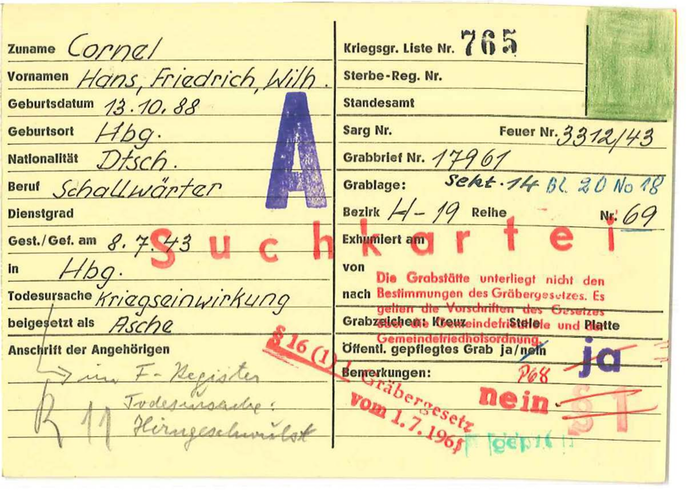 Zuname Cornel
Vornamen Hans, Friedrich, Wilh.
Geburtsdatum 13.10.88
Geburtsort Hbg.
Nationalität Dtsch.
Beruf Schallwärter
Dienstgrad
Gest./Gef. am 8.7.43
in Hbg.
Todesursache Kriegseinwirkung
beigesetzt als Asche
Anschrift der Angehörigen
im F-Register
Todesursache:
Hirngeschwulst
R 11
A
Suchkartei
Kriegsgr. Liste Nr. 765
Sterbe-Reg. Nr.
Standesamt
Sarg Nr. Feuer Nr. 3312/43
Grabbrief Nr. 17961
Grablage: Sekt. 14 Bl. 20 No 18
Bezirk H-19 Reihe Nr. 69
Exhumiert am
von
nach
Die Grabstätte unterliegt nicht den
Bestimmungen des Gräbergesetzes. Es
gelten die Vorschriften des Gesetzes
über die Gemeindefriedhöfe und die
Gemeindefriedhofsordnung.
Grabzeichen: Kreuz Stele Platte
Öffentl. gepflegtes Grab ja/nein ja
Bemerkungen: P68
nein
§ 16 (1) Gräbergesetz
vom 1.7.1965